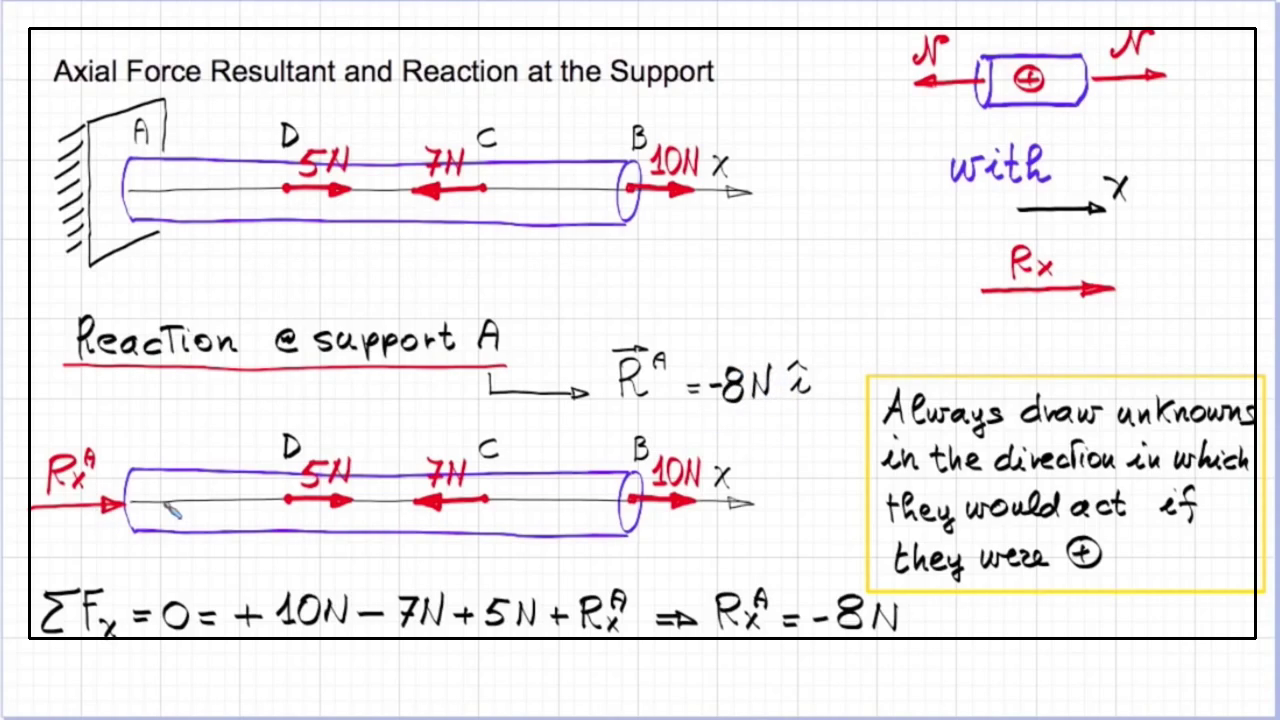 Axial Force Resultant and Reaction at the Support
N N
+
A D 5N 7N C B 10N x
with
x
Rx
Reaction @ support A
R^A = -8N î
Always draw unknowns
in the direction in which
they would act if
they were ⊕
Rx^A D 5N 7N C B 10N x
ΣFx = 0 = + 10N - 7N + 5N + Rx^A ⇒ Rx^A = -8N